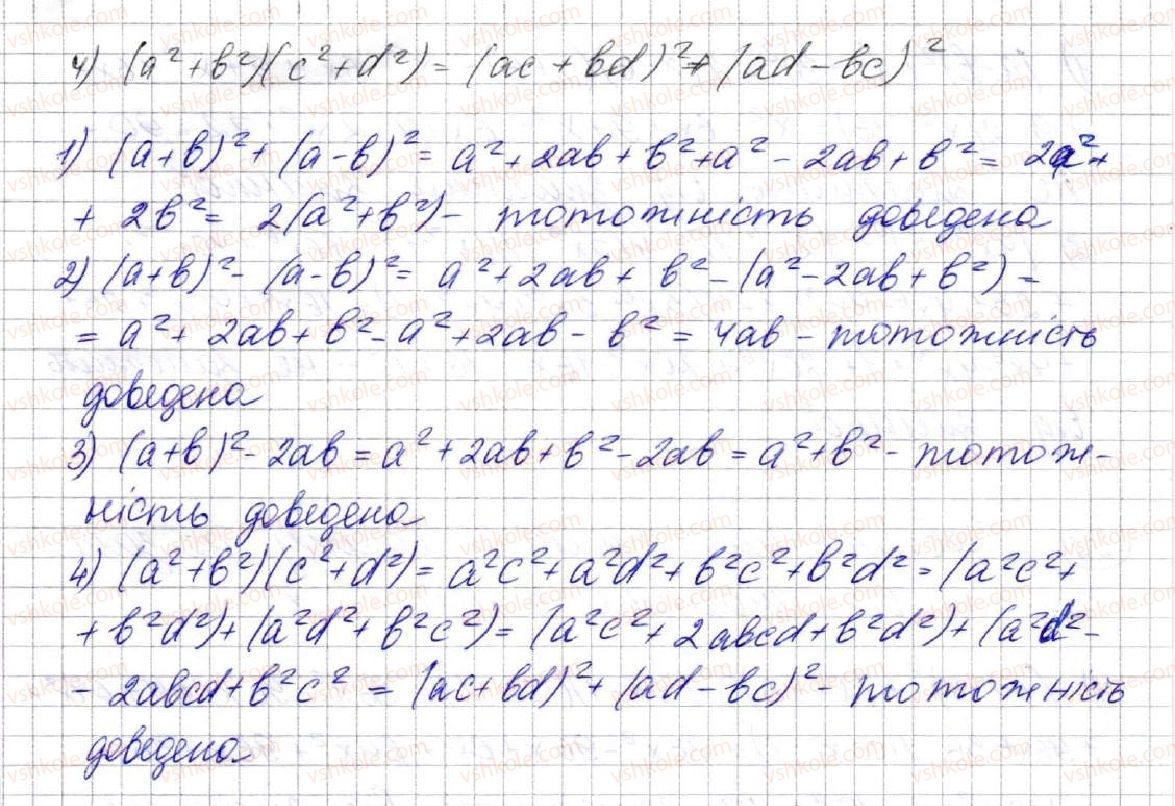 4) (a²+b²)(c²+d²) = (ac + bd)² + (ad - bc)²
1) (a+b)² + (a-b)² = a² + 2ab + b² + a² - 2ab + b² = 2a² +
+ 2b² = 2(a²+b²) - тотожність доведена
2) (a+b)² - (a-b)² = a² + 2ab + b² - (a² - 2ab + b²) =
= a² + 2ab + b² - a² + 2ab - b² = 4ab - тотожність
доведена
3) (a+b)² - 2ab = a² + 2ab + b² - 2ab = a² + b² - тотож-
ність доведена
4) (a²+b²)(c²+d²) = a²c² + a²d² + b²c² + b²d² = (a²c² +
+ b²d²) + (a²d² + b²c²) = (a²c² + 2abcd + b²d²) + (a²d² -
- 2abcd + b²c² = (ac + bd)² + (ad - bc)² - тотожність
доведена
vshkole.com